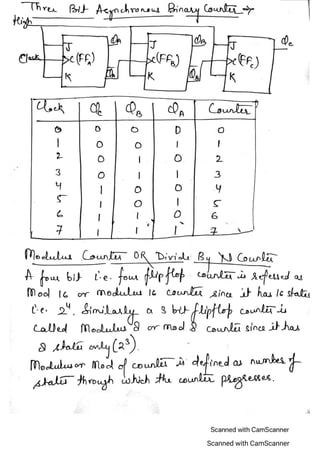 Three Bit Asynchronous Binary Counter →
High
QA QB QC
J J J
Clock >C(FFA) >C(FFB) >C(FFC)
K K K
Clock QC QB QA Counter
0 0 0 0 0
1 0 0 1 1
2 0 1 0 2
3 0 1 1 3
4 1 0 0 4
5 1 0 1 5
6 1 1 0 6
7 1 1 1 7
Modulus Counter OR Divide By N Counter
A four bit i.e. four flipflop counter is refessed as
Mod 16 or modulus 16 counter since it has 16 states
i.e. 2⁴. Similarly a 3 bit flipflop counter is
Called Modulus 8 or mod 8 counter since it has
8 states only (2³).
Modulus or Mod of counter is defined as number of
states through which the counter progresses.
Scanned with CamScanner
Scanned with CamScanner